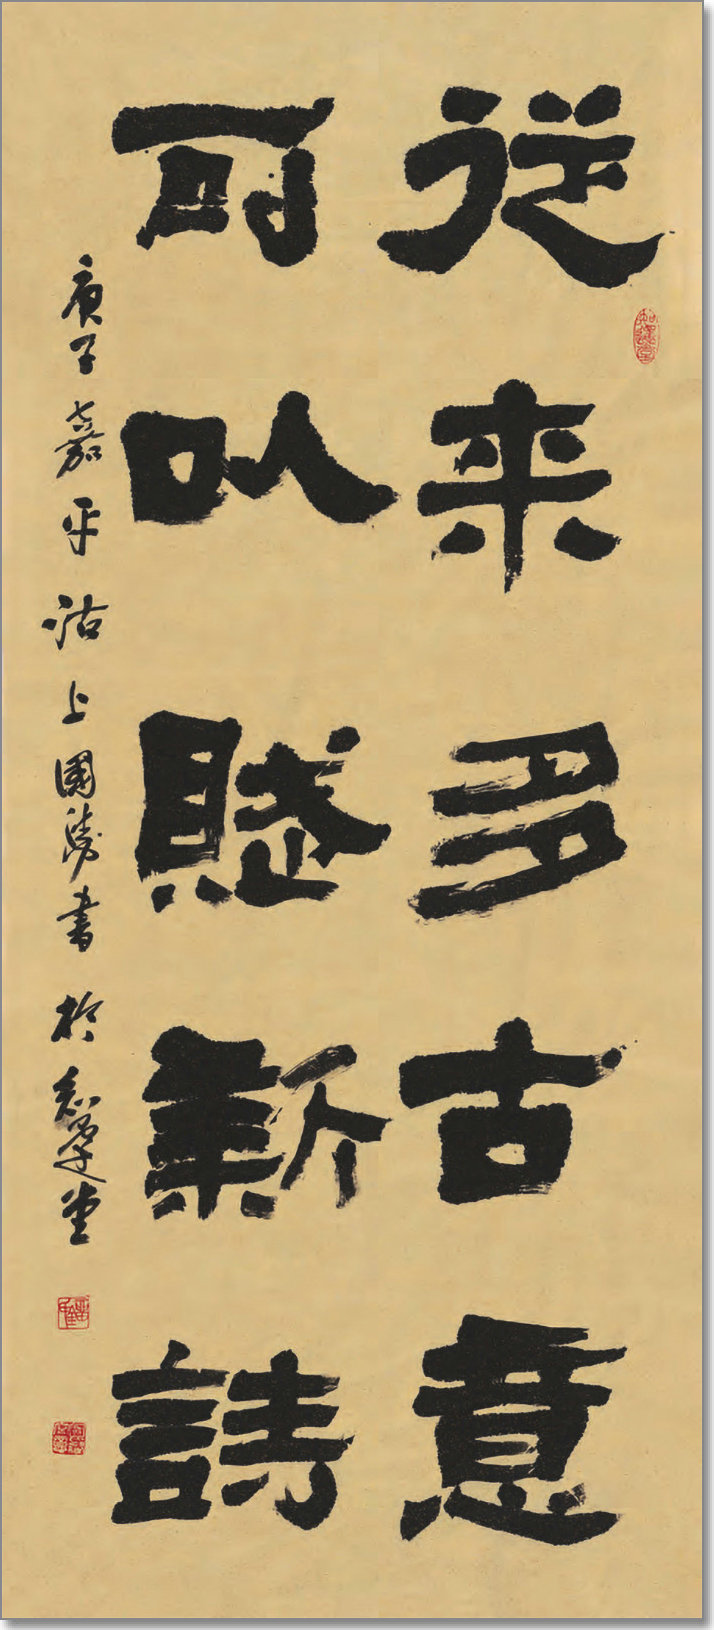 從来多古意
可以賦新詩
庚子嘉平沽上國書於堂